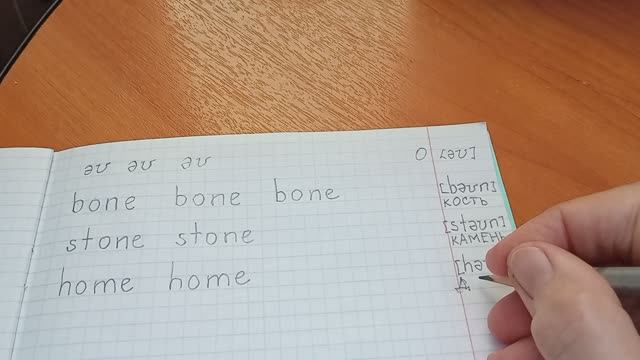 əʊ əʊ əʊ O [əʊ]
bone bone bone [bəʊn]
КОСТЬ
stone stone [stəʊn]
КАМЕНЬ
home home [hə
Д